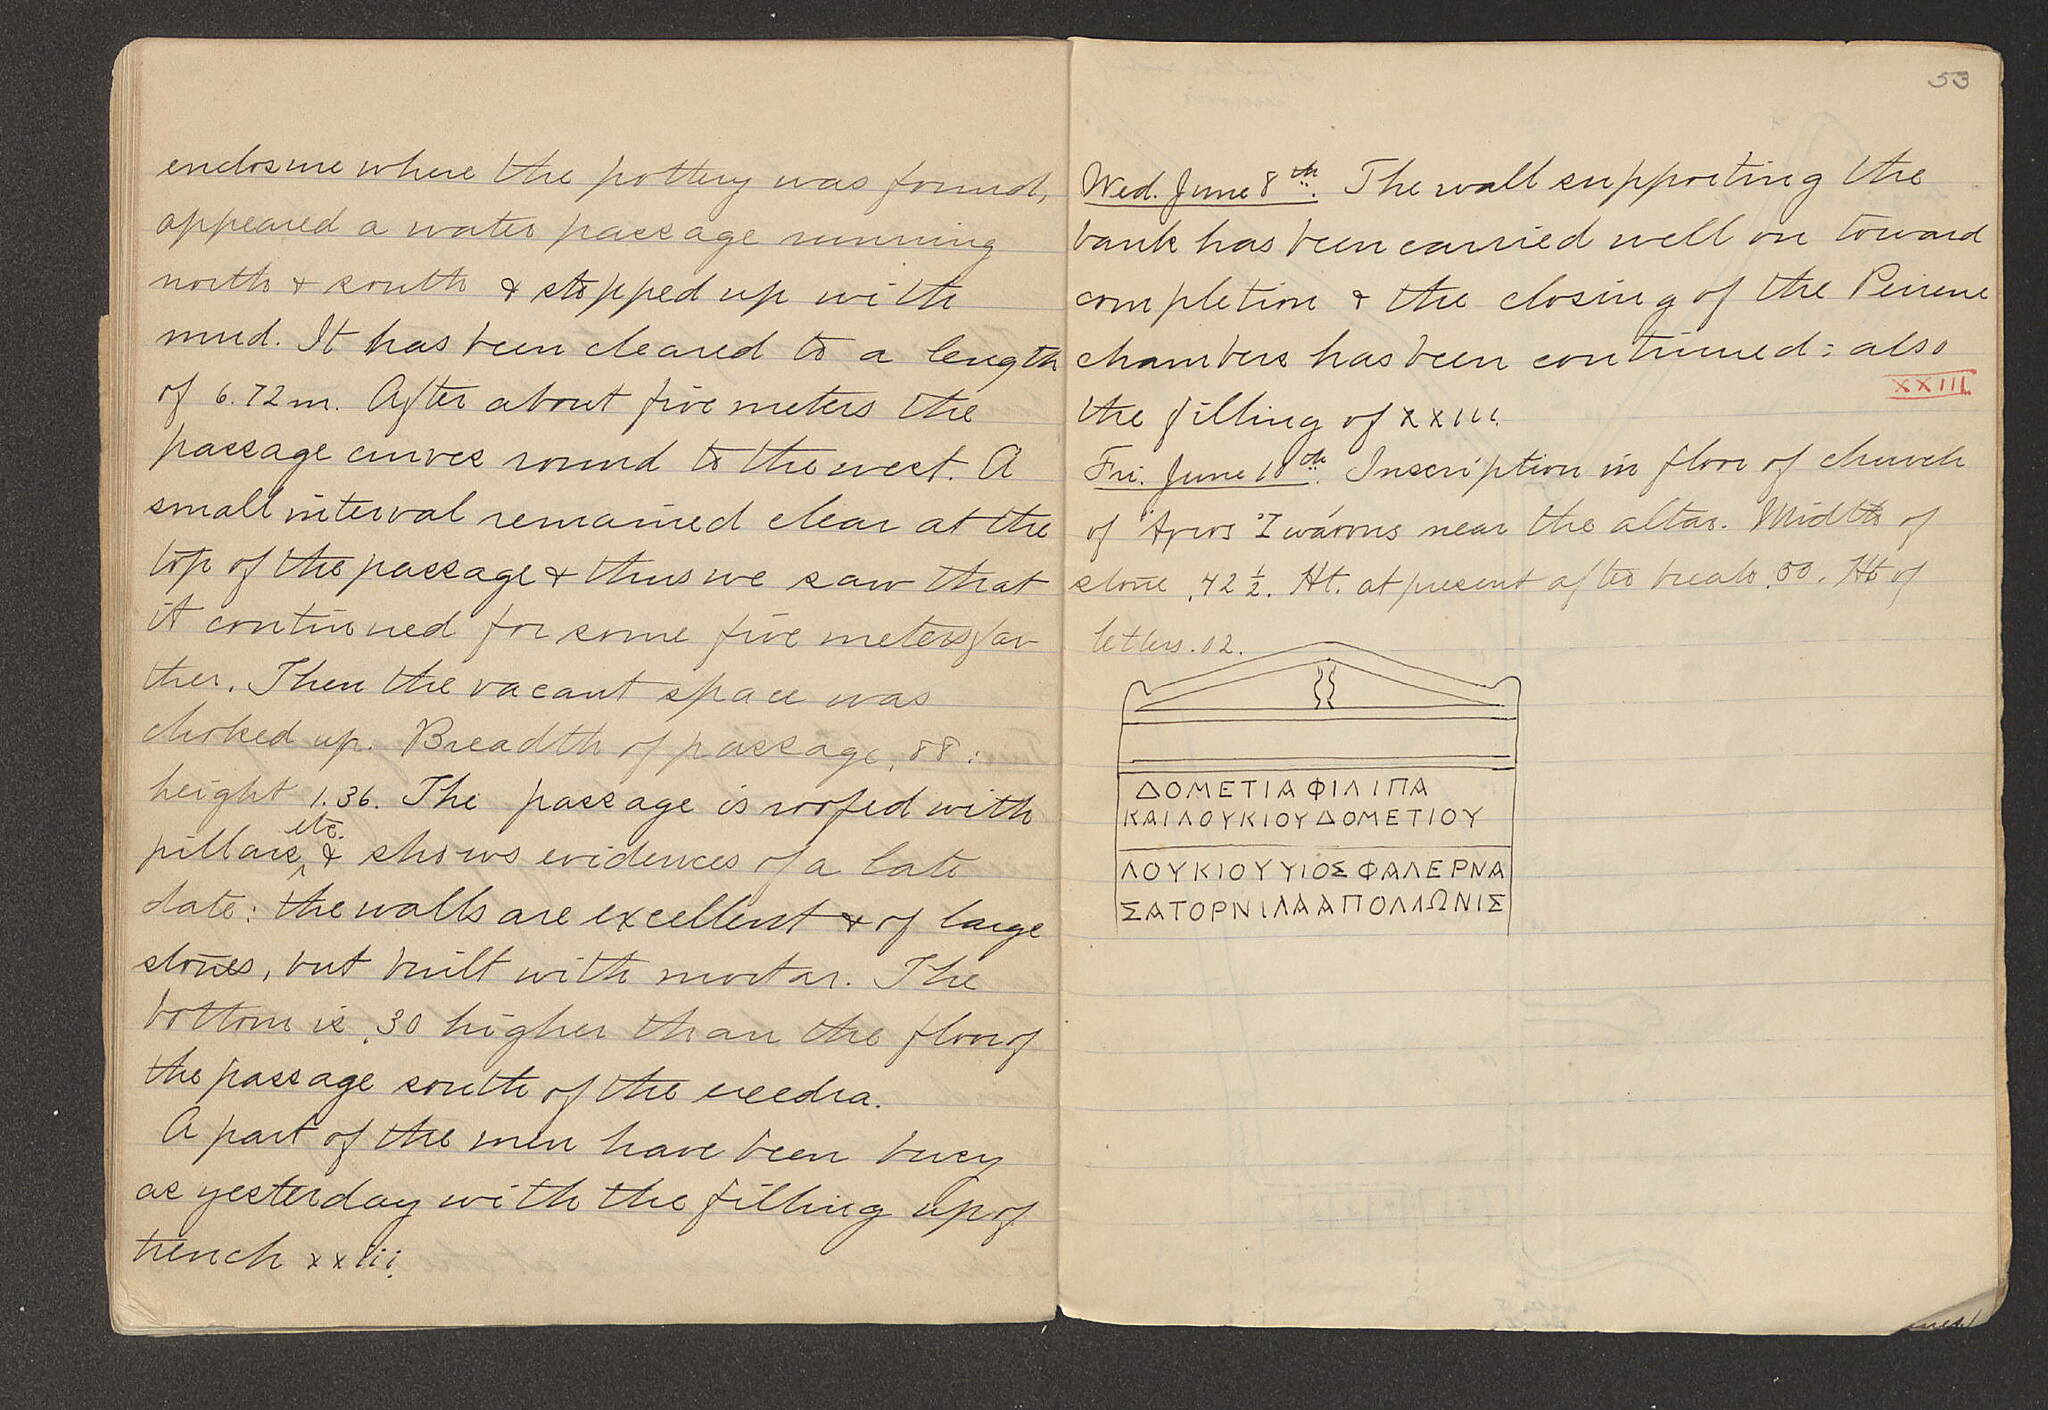 enclosure where the pottery was found,
appeared a water passage running
north & south & stopped up with
mud. It has been cleared to a length
of 6.72 m. After about five meters the
passage curves round to the west. A
small interval remained clear at the
top of the passage & thus we saw that
it continued for some five meters far
ther. Then the vacant space was
choked up. Breadth of passage, .88 :
height 1.36. The passage is roofed with
pillars, etc. & shows evidences of a late
date: the walls are excellent & of large
stones, but built with mortar. The
bottom is .30 higher than the floor of
the passage south of the exedra.
A part of the men have been busy
as yesterday with the filling up of
trench xxiii.
53
Wed. June 8th. The wall supporting the
bank has been carried well on toward
completion & the closing of the Peirene
chambers has been continued: also
XXIII
the filling of xxiii.
Fri. June 10th. Inscription in floor of church
of Ἅγιος Ἰωάννης near the altar. Width of
stone .42½. Ht. at present after break .50. Ht of
letters .02.
ΔΟΜΕΤΙΑ ΦΙΛΙΠΑ
ΚΑΙ ΛΟΥΚΙΟΥ ΔΟΜΕΤΙΟΥ
ΛΟΥΚΙΟΥ ΥΙΟΣ ΦΑΛΕΡΝΑ
ΣΑΤΟΡΝΙΛΑ ΑΠΟΛΛΩΝΙΣ